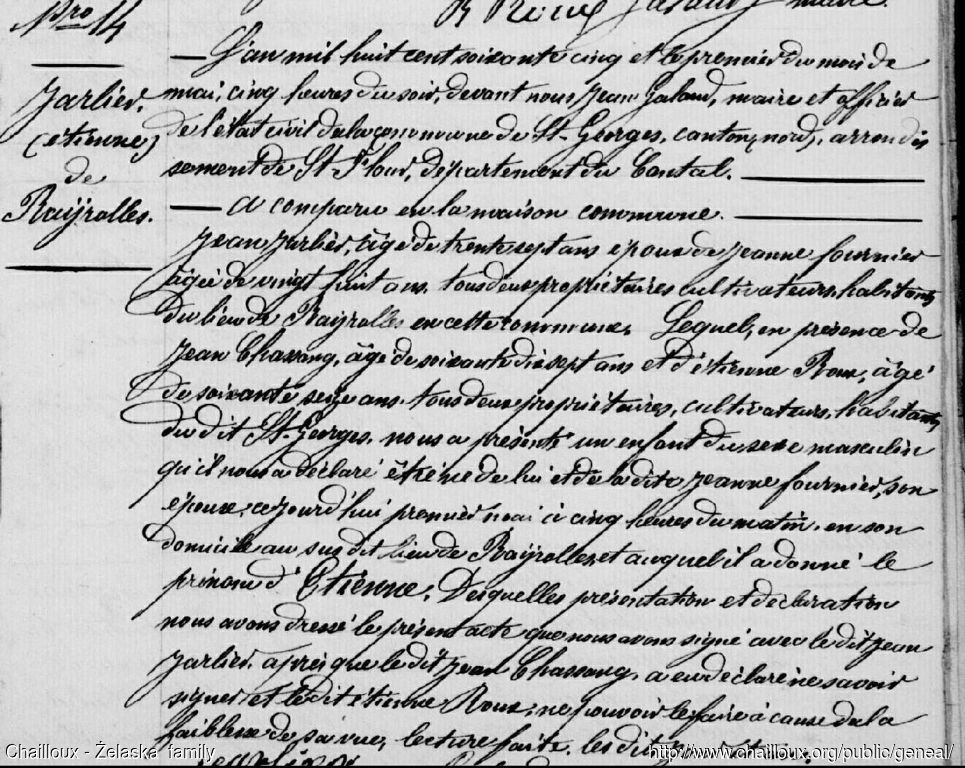 Nro 14
Jarlier,
(étienne)
de
Rayrolles.
maire.
L'an mil huit cent soixante cinq et le premier du mois de
mai, cinq heures du soir, devant nous Jean Galand, maire et officier
de l'état civil de la commune de St. Georges, canton, nord, arrondis
sement de St. Flour, département du Cantal.
a comparu en la maison commune.
Jean Jarlier, âgé de trente sept ans époux de jeanne fournier
âgée de vingt huit ans, tous deux propriétaires cultivateurs, habitants
du lieu de Rayrolles en cette commune, Lequel, en présence de
Jean Chassang, âgé de soixante dix sept ans et d'étienne Roux, âgé
de soixante seize ans, tous deux propriétaires, cultivateurs, habitants
du dit St. Georges, nous a présenté un enfant du sexe masculin
qu'il nous a déclaré être né de lui et de la dite jeanne fournier, son
épouse, cejourd'hui premier mai à cinq heures du matin, en son
domicile au sus dit lieu de Rayrolles, et auquel il a donné le
prénom d'Etienne, Desquelles présentation et déclaration
nous avons dressé le présent acte que nous avons signé avec le dit Jean
Jarlier, après que le dit Jean Chassang, a eu déclaré ne savoir
signer et le dit étienne Roux, ne pouvoir le faire à cause de la
faiblesse de sa vue, lecture faite, les dits
Chailloux - Żelaska family
http://www.chailloux.org/public/geneal/